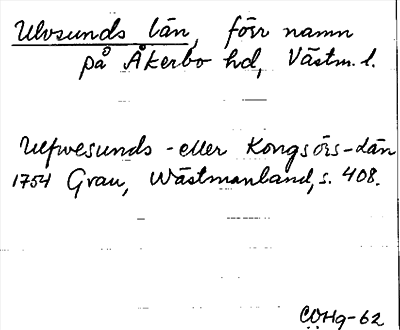 Ulvsunds län, förr namn
på Åkerbo hd, Västm. l.
Ulfwesunds - eller Kongsörs-län
1754 Grau, Wästmanland, s. 408.
CÖHg-62